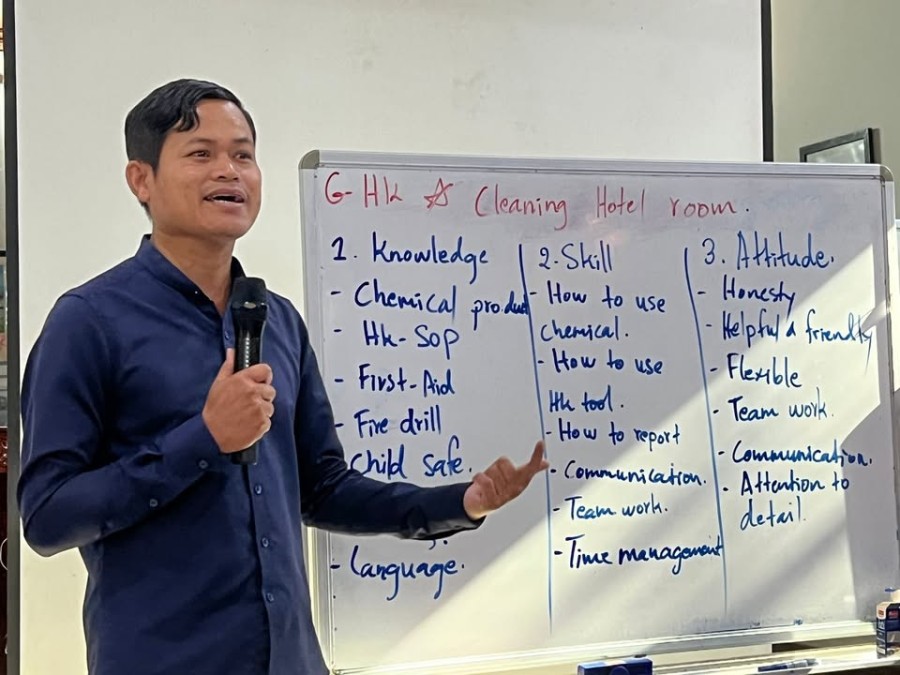 G-Hk ☆ Cleaning Hotel room.
1. Knowledge
- Chemical product
- Hk-Sop
- First-Aid
- Fire drill
Child safe.
- Language.
2. Skill
- How to use
chemical.
- How to use
Hk tool.
- How to report
- Communication.
- Team work.
- Time management
3. Attitude.
- Honesty
- Helpful & friendly
- Flexible
- Team work.
- Communication.
- Attention to
detail.